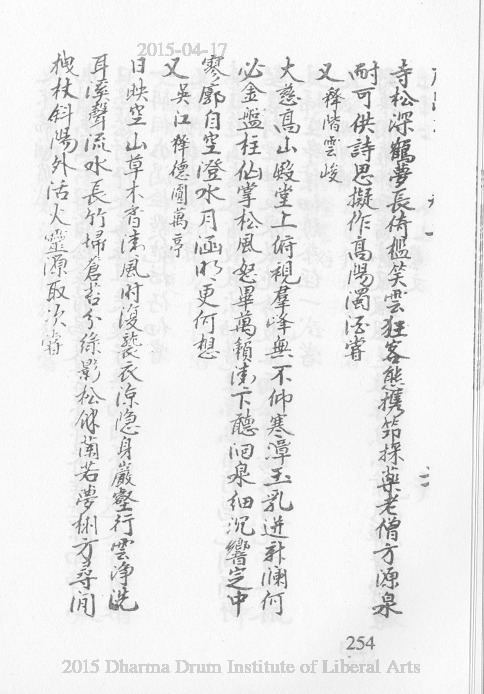 2015-04-17
寺松深鶴夢長倚檻笑雲狂客態携筇採藥老僧方源泉
耐可供詩思擬作高陽濁酒嘗
又 釋階雲峻
大慈高山殿堂上俯視羣峰無不仰寒漳玉乳迸新瀾何
必金盤柱仙掌松風怒畢萬籟清下聽洄泉細沉響定中
寥廓自空澄水月涵明更何想
又 吳江釋德圓萬亭
日映空山草木香清風時復襲衣涼隐身巖壑行雲淨洗
耳溪聲流水長竹掃蒼苔分綠影松條蘭若夢樹方尋閒
拽杖斜陽外活火靈源取次嘗
254
2015 Dharma Drum Institute of Liberal Arts